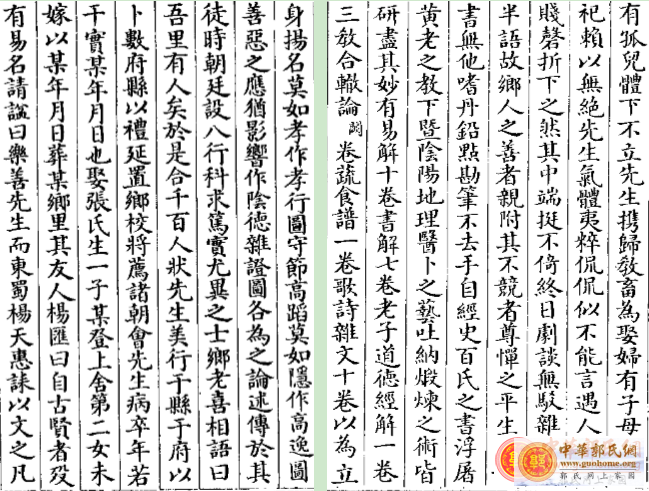 有孤兒體下不立先生携歸敎畜為娶婦有子母
祀賴以無絶先生氣體夷粹侃侃似不能言遇人
賤磬折下之然其中端挺不倚終日劇談無駁雜
半語故鄉人之善者親附其不競者尊憚之平生
書無他嗜丹鉛點勘筆不去手自經史百氏之書浮屠
黄老之敎下暨陰陽地理醫卜之藝吐納煅煉之術皆
研盡其妙有易解十卷書解七卷老子道德經解一卷
三敎合轍論闕卷蔬食譜一卷歌詩雜文十卷以為立
身揚名莫如孝作孝行圖守節高蹈莫如隱作高逸圖
善惡之應猶影響作陰德雜證圖各為之論述傳於其
徒時朝廷設八行科求篤實尤異之士鄉老喜相語曰
吾里有人矣於是合千百人狀先生美行于縣于府以
卜數府縣以禮延置鄉校將薦諸朝會先生病卒年若
干實某年月日也娶張氏生一子某登上舍第二女未
嫁以某年月日葬某鄉里其友人楊匯曰自古賢者歿
有易名請諡曰樂善先生而東蜀楊天惠誄以文之凡
中華郭氏網
www.guohome.org
郭氏網上家園